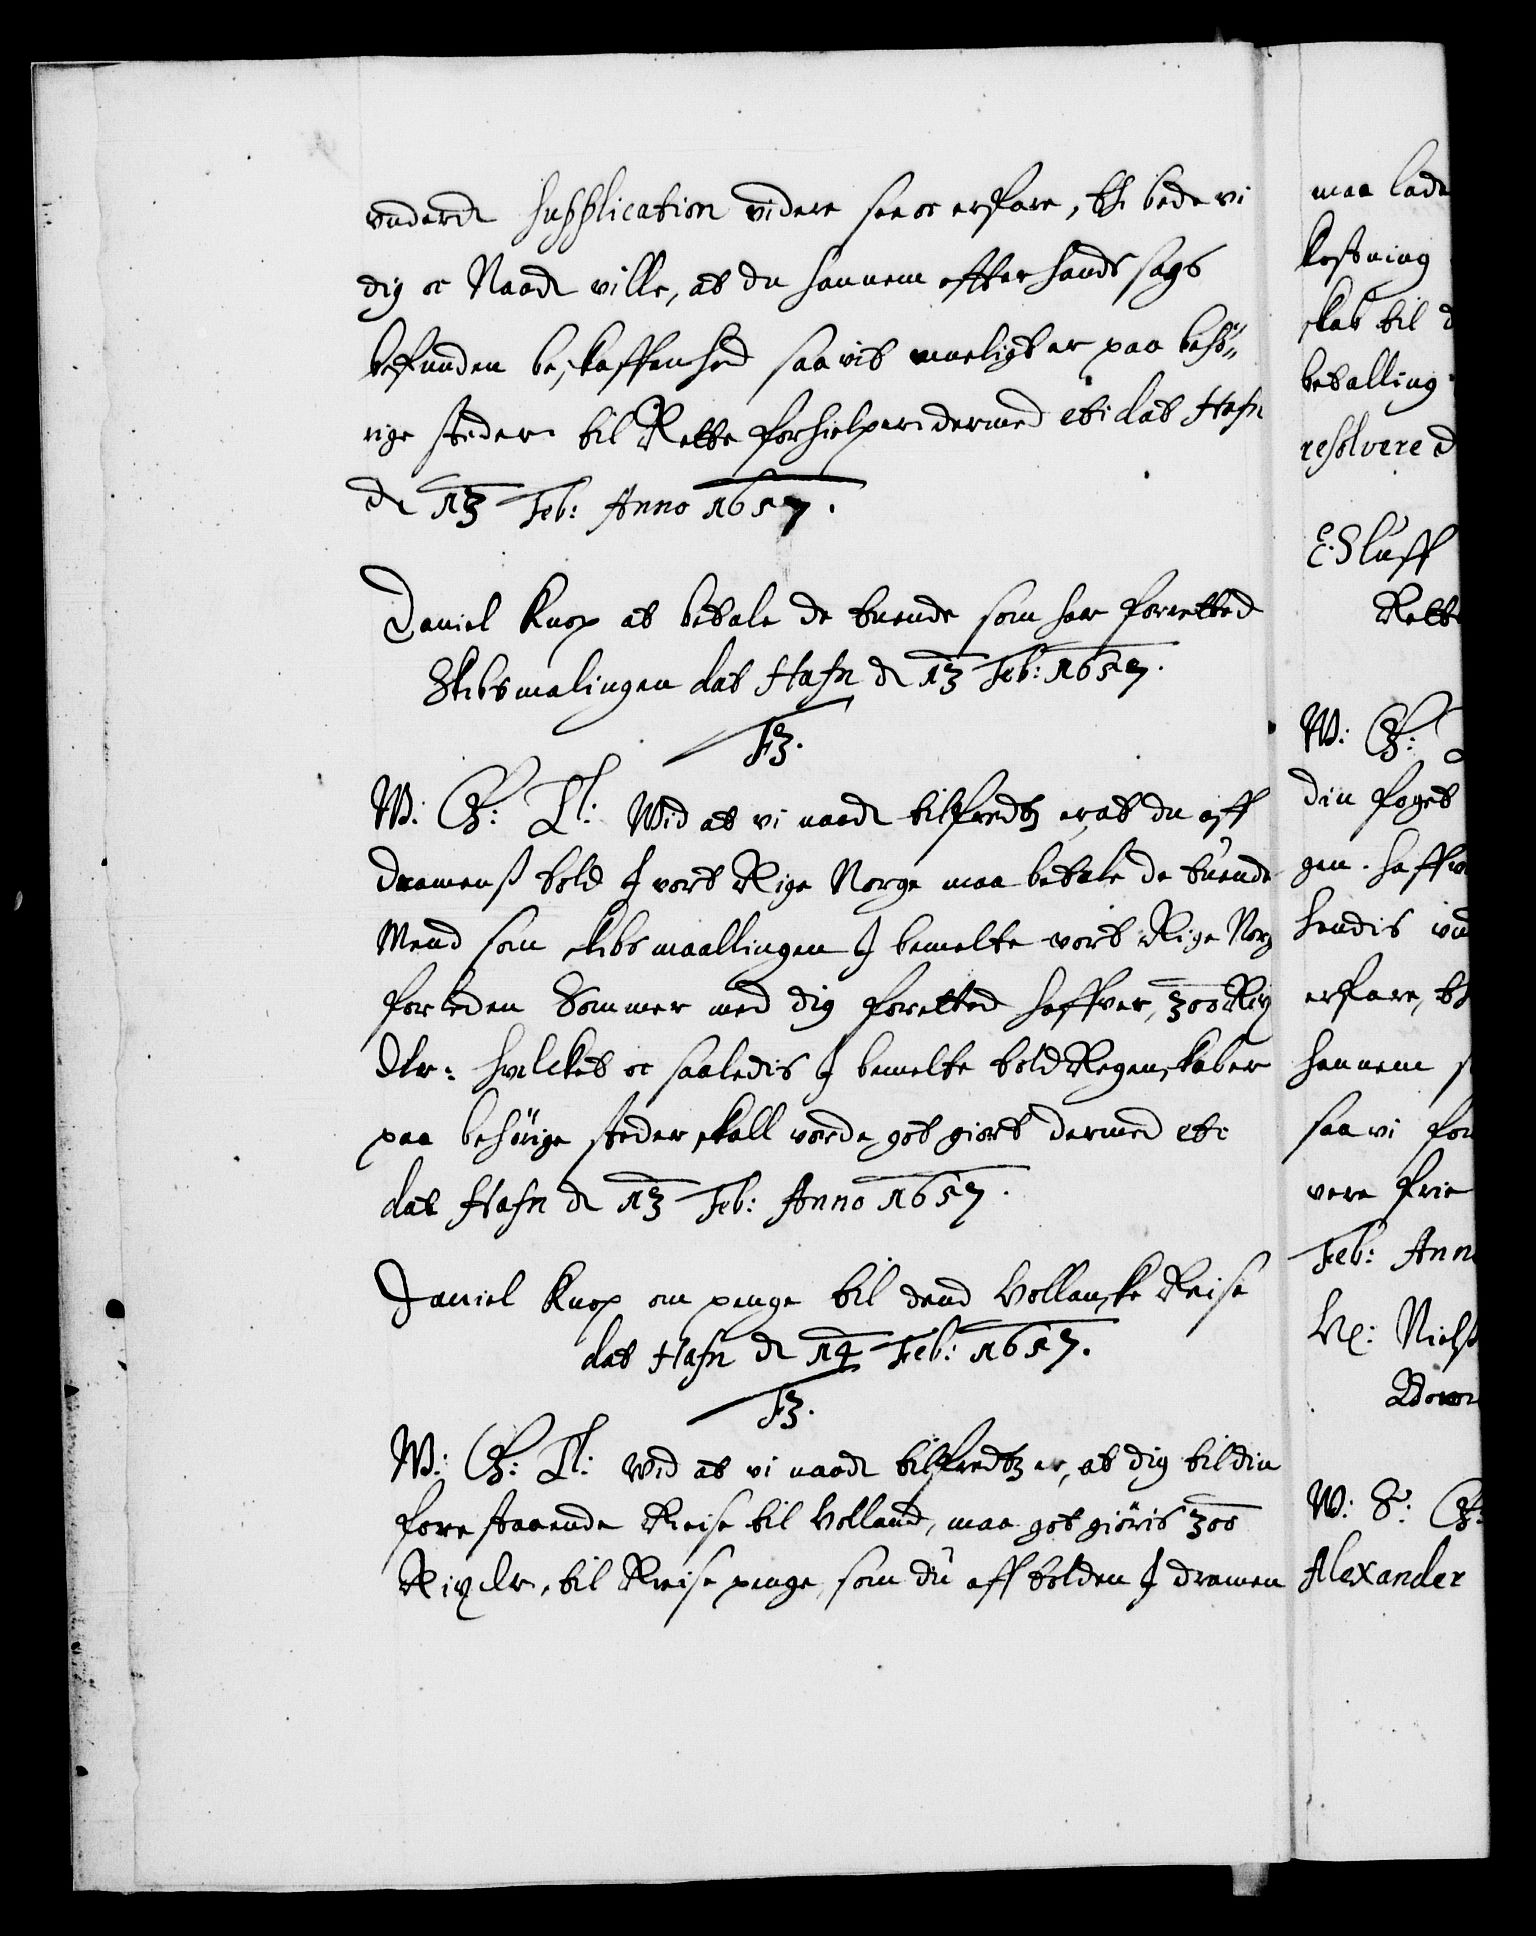 underd: Supplication videre see oc erfare, thi bede vi
dig oc Naad: ville, at du hannem effter hands sags
befunden beskaffenhed saavit mueligt er paa behö-
rige steder til Rette forhielper dermed etc dat Hafn
d: 13 Feb: Anno 1657.
Daniel Knop at betale de tuende som har forretted
Skibsmalingen dat Hafn d: 13 Feb: 1657.
F3.
W: G: T: Wid at vi naad: tilfredtz er, at du aff
Dramens told I vort Rige Norge maa betale de tuende
Mend som skibsmaallingen I bemelte vort Rige Norg
forleden Sommer med dig foretted haffver, 300 Rix
dlr: hvilcket oc saaledis I bemelte told Regenskaber
paa behörige steder skall vorde got giort dermed etc
dat Hafn d: 13 Feb: Anno 1657.
Daniel Knop om penge til dend Hollanske Reise
dat Hafn d: 14 Feb: 1657.
F3.
W: G: T: Wid at vi naad: tilfredtz er, at dig til din
forestaaende Reise til Holland, maa got giöris 300
Rixdlr. til Reise penge, som du aff tolden I Dramen
maa lade
kostning
skab til
betalling
resolvere d
E. Sluff
Rette
W: G:
din foget
gen. haffve
hendis und
erfare, th
hannem
saa vi for
vere frie
Feb: Anno
Niels
W: S: G:
Alexander